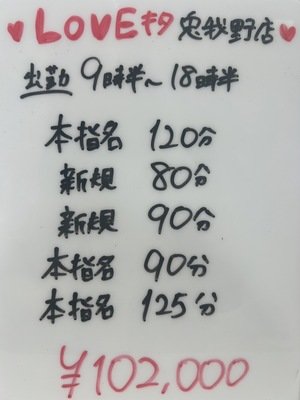 ♥LOVEキタ 兎我野店♥
出勤 9時半〜18時半
本指名 120分
新規 80分
新規 90分
本指名 90分
本指名 125分
¥102,000